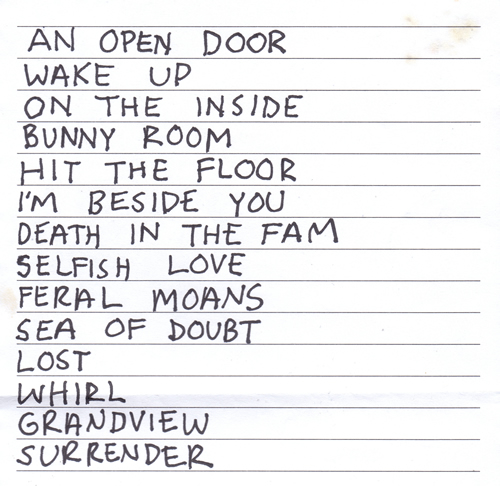 AN OPEN DOOR
WAKE UP
ON THE INSIDE
BUNNY ROOM
HIT THE FLOOR
I'M BESIDE YOU
DEATH IN THE FAM
SELFISH LOVE
FERAL MOANS
SEA OF DOUBT
LOST
WHIRL
GRANDVIEW
SURRENDER